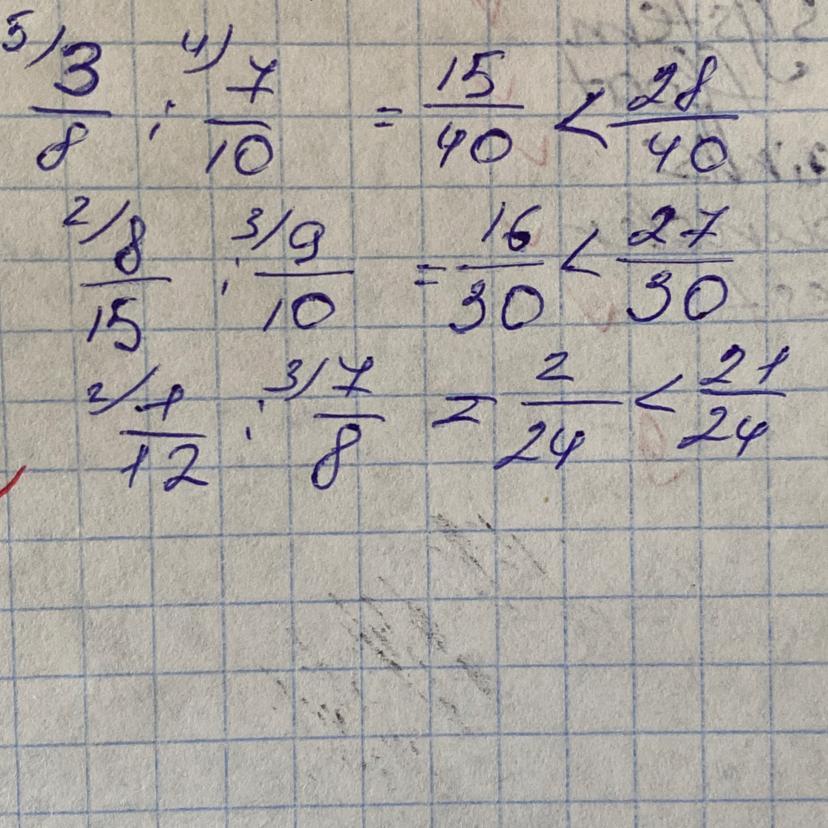 5/ 3/8 ; 4/ 7/10 = 15/40 < 28/40
2/ 8/15 ; 3/ 9/10 = 16/30 < 27/30
2/ 1/12 ; 3/ 7/8 = 2/24 < 21/24